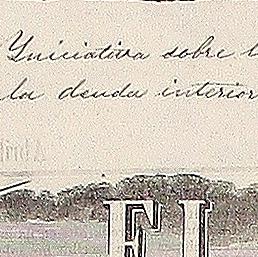 Yniciativa sobre l
la deuda interior
EL